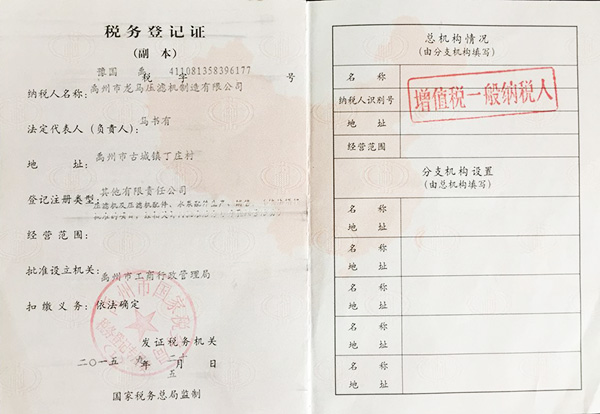 税务登记证
(副 本)
豫国 税 禹 字 411081358396177 号
纳税人名称: 禹州市龙马压滤机制造有限公司
法定代表人(负责人): 马书有
地 址: 禹州市古城镇丁庄村
登记注册类型: 其他有限责任公司
压滤机及压滤机配件、水泵配件生产、
经营范围:
批准设立机关: 禹州市工商行政管理局
扣缴义务: 依法确定
发证税务机关
二〇一五 年 九 月 二十五 日
国家税务总局监制
总机构情况
(由分支机构填写)
名 称
纳税人识别号
地 址
经营范围
增值税一般纳税人
分支机构设置
(由总机构填写)
名 称
地 址
名 称
地 址
名 称
地 址
名 称
地 址
名 称
地 址